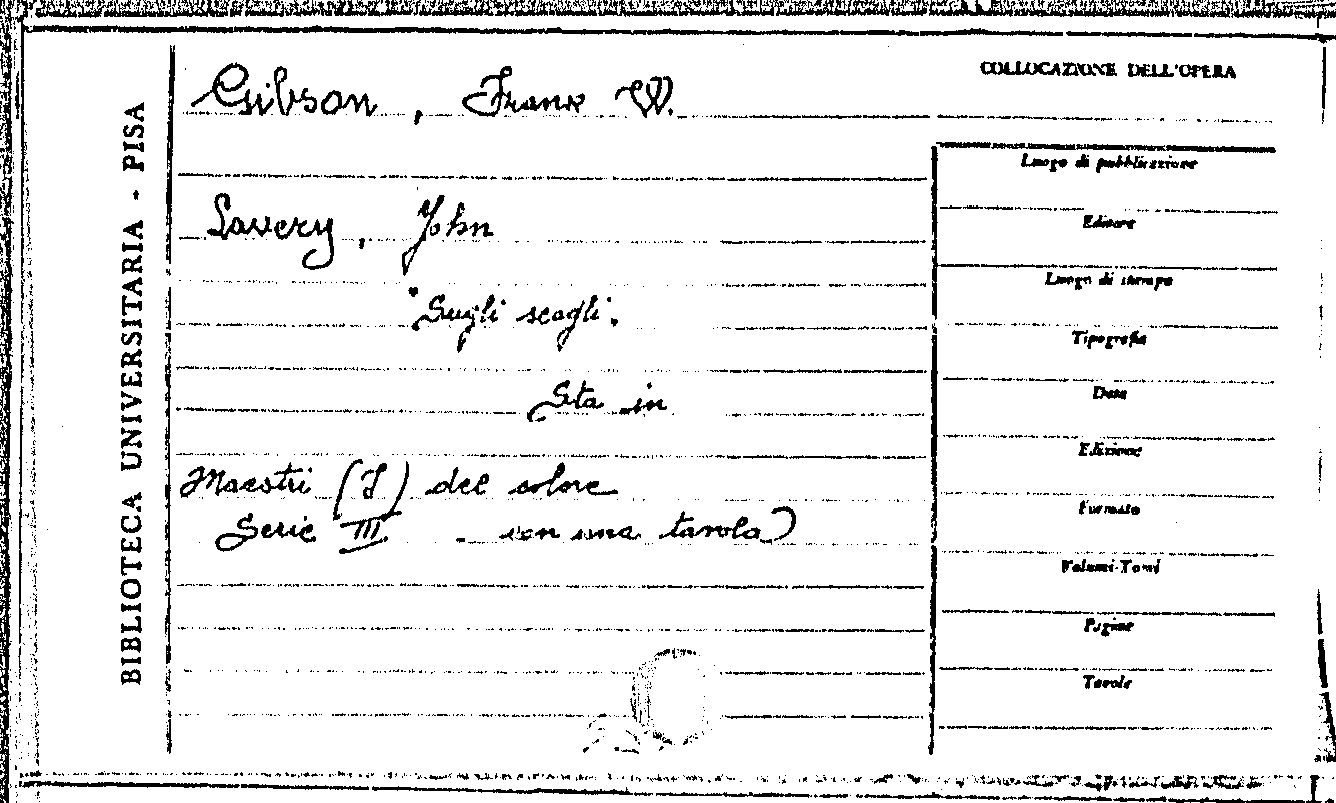 BIBLIOTECA UNIVERSITARIA - PISA
Gibson, Frank W.
Lavery, John
"Sugli scogli"
Sta in
Maestri (I) del colore
Serie III - con una tavola)
COLLOCAZIONE DELL'OPERA
Luogo di pubblicazione
Editore
Luogo di stampa
Tipografia
Data
Edizione
Formato
Volumi-Tomi
Pagine
Tavole